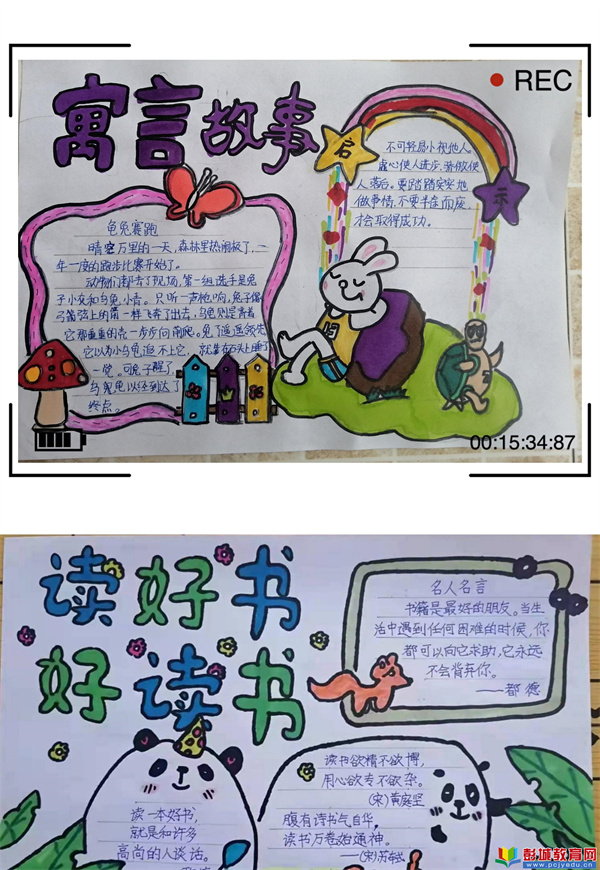 REC
寓言故事
启示
不可轻易小视他人。
虚心使人进步，骄傲使
人落后。要踏踏实实地
做事情，不要半途而废，
才会取得成功。
龟兔赛跑
晴空万里的一天，森林里热闹极了，一
年一度的跑步比赛开始了。
动物们都来了现场，第一组选手是兔
子小灰和乌龟小青。只听一声枪响，兔子像
弓箭弦上的箭一样飞奔了出去，乌龟则是背着
它那重重的壳一步步向前爬。兔子遥遥领先
它以为小乌龟追不上它，就靠在石头上睡了
一觉。可兔子醒了，
乌龟已经到达了
终点。
00:15:34:87
读好书
好读书
名人名言
书籍是最好的朋友。当生
活中遇到任何困难的时候，你
都可以向它求助，它永远
不会背弃你。
——都德
读书欲精不欲博，
用心欲专不欲杂。
(宋)黄庭坚
腹有诗书气自华，
读书万卷始通神。
——(宋)苏轼
读一本好书，
就是和许多
高尚的人谈话。
彭城教育网
www.pcjyedu.cn